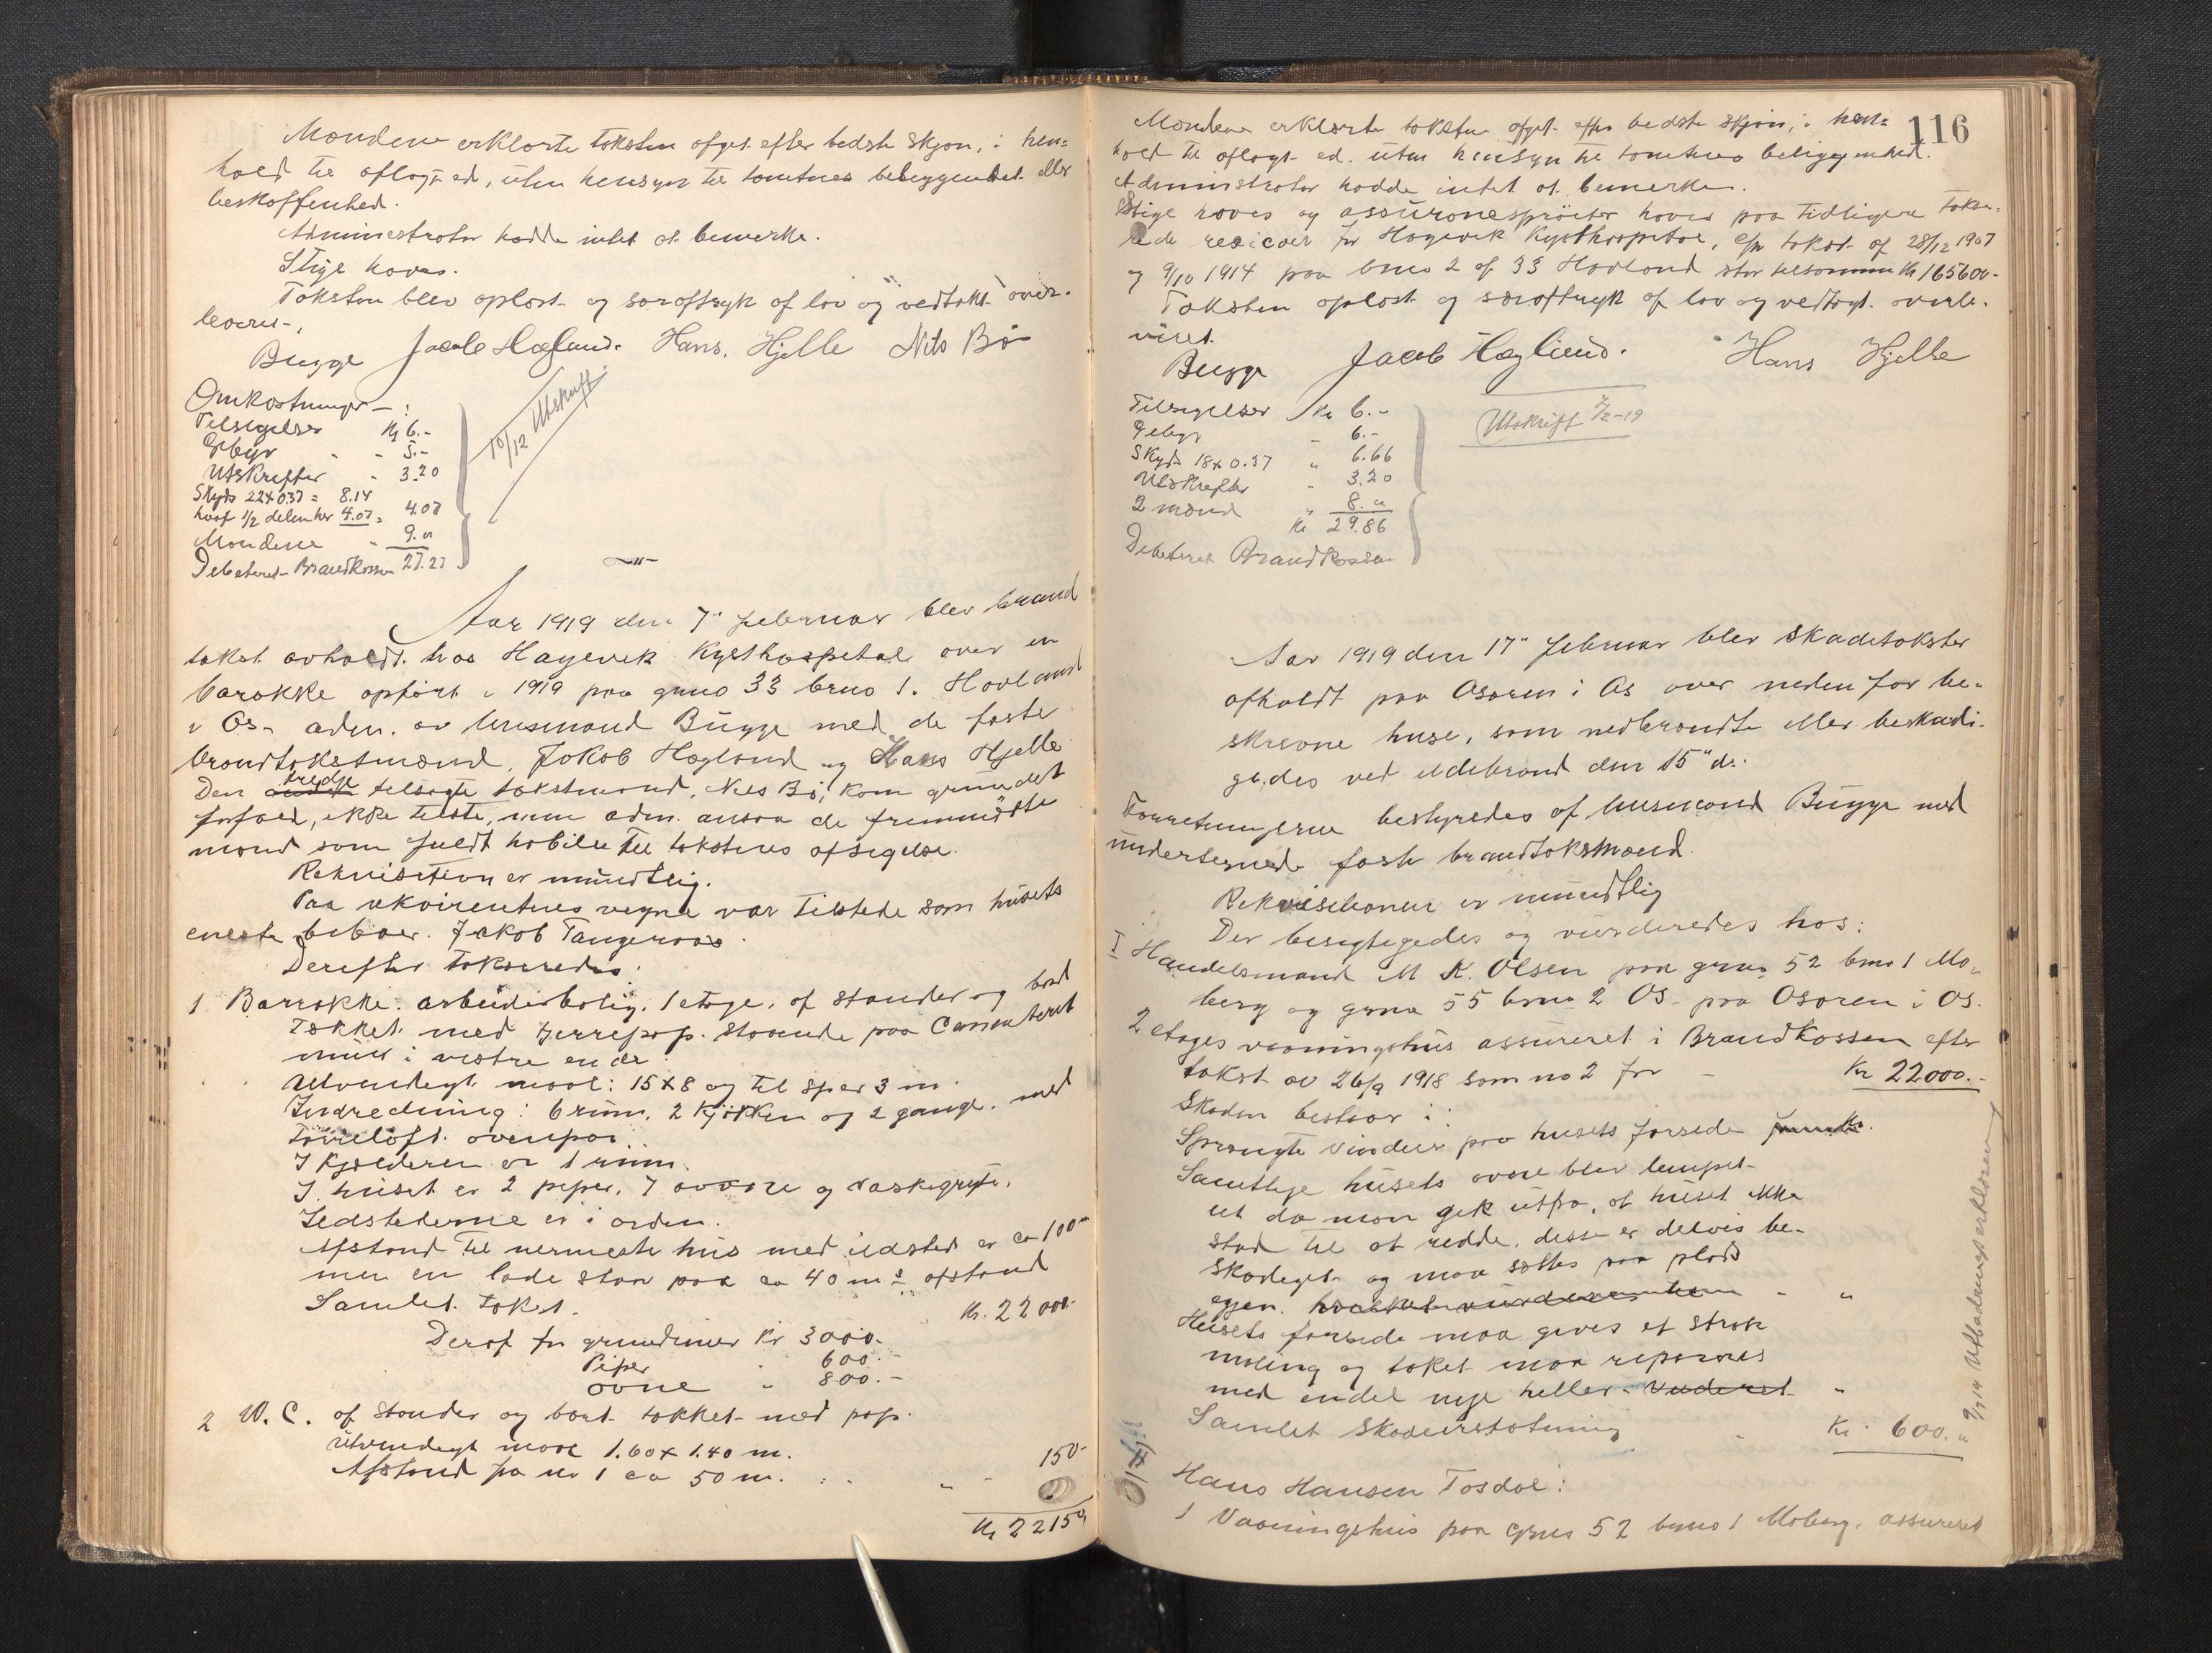 Mændene erklærte taksten afgit efter bedste skjøn, i hen-
hold til aflagt ed, uten hensyn til tomtenes beliggenhet eller
beskaffenhed.
Administrator hadde intet at bemerke.
Stige haves.
Taksten blev oplæst og særaftryk af lov og vedtækt over-
leveret.
Bugge Jacob Hægland. Hans. Hjelle Nils Bø
Omkostninger:
Tilsigelser Kr 6.-
Gebyr - - 5.-
Utskrifter - 3.20
Skyds 22x0.37 = 8.14
hvoraf 1/2 delen her 4.07 = 4.07
Mændene - 9.-
Debeteret Brandkassen 27.27
10/12 Utskrift
Aar 1919 den 7 februar blev brand
takst avholdt hos Hagevik Kysthospital over en
barakke opført i 1919 paa gno 33 bno 1. Hovland
i Os. adm. av lensmand Bugge med de faste
brandtakstmænd, Jakob Hægland og Hans Hjelle
Den tredje tilsagte takstmand, Nils Bø, kom grundet
forfald, ikke tilstede, men adm. ansaa de fremmødte
mænd som fuldt habile til takstens afsigelse.
Rekvisition er mundtlig.
Paa rekvirentens vegne var tilstede som husets
eneste beboer. Jakob Tangeraas.
Derefter takseredes:
1 Barrakke: arbeiderbolig, 1 etage, af stander og bord
Tækket med Jerrepap. staaende paa Cementeret
mur i vestre ende.
Utvendigt maal: 15x8 og til sper 3 m.
Indredning: 6 rum, 2 kjøkken og 2 gange. med
Tørreloft ovenpaa.
I kjælderen er 1 rum.
I huset er 2 piper, 7 ovne og vaskegryte.
Ildstederne er i orden.
Afstand til nermeste hus med ildsted er ca 100 m
men en lade staar paa ca 40 m's afstand
Samlet takst. Kr. 22000.-
Deraf for grundmur Kr 3000.-
Piper - 600.-
ovne - 800.-
2 W. C. af stander og bord tækket med pap.
Utvendigt maal 1.60 x 1.40 m.
Afstand fra no 1 ca 50 m. - 150.-
Kr 22150
116
Mændene erklærte taksten afgit efter bedste skjøn, i hen-
hold til aflagt ed. uten hensyn til tomtenes beliggenhed.
Administrator hadde intet at bemerke.
Stige haves og assuransesprøiter haves paa tidligere takse-
rede for Hagevik Kysthospital, efter takst af 28/12 1907
og 9/10 1914 paa bno 2 af 33 Hovland stor tilsammen Kr 165600.-
Taksten oplæst og særaftryk af lov og vedtægt overle-
veret.
Bugge Jacob Hægland. Hans Hjelle
Tilsigelser Kr 6.-
Gebyr - 6.-
Skyds 18x0.37 " 6.66
Utskrifter - 3.20
2 mænd " 8.-
Kr 29.86
Debeteret Brandkassen
Utskrift 7/2-19
Aar 1919 den 17 februar blev skadetakster
afholdt paa Osøren i Os over neden for be-
skrevne huse, som nedbrændte eller beskadi-
gedes ved ildebrand den 15" ds.
Forretningerne bestyredes af lensmand Bugge med
undertegnede faste brandtakstmænd.
Rekvisitionen er mundtlig
Der besigtigedes og vurderedes hos:
I Handelsmand M K. Olsen paa gno 52 bno 1 Mo-
berg og gno 55 bno 2 Os- paa Osøren i Os.
2 etages vaaningshus assureret i Brandkassen efter
takst av 26/9 1918 som no 2 for - Kr 22000.-
Skaden bestaar i:
Sprængte vinduer paa husets forside
Samtlige husets ovne blev lempet
ut da man gik utfra, at huset ikke
stod til at redde. disse er delvis be-
skadiget og maa sættes paa plads
igjen. - "
Husets forside maa gives et strøk
maling og taket maa repareres
med endel nye heller. Vurderet "
Samlet skadeerstatning - Kr. 600.-
Hans Hansen Tøsdal:
1 Vaaningshus paa gno 52 bno 1 Moberg, assureret